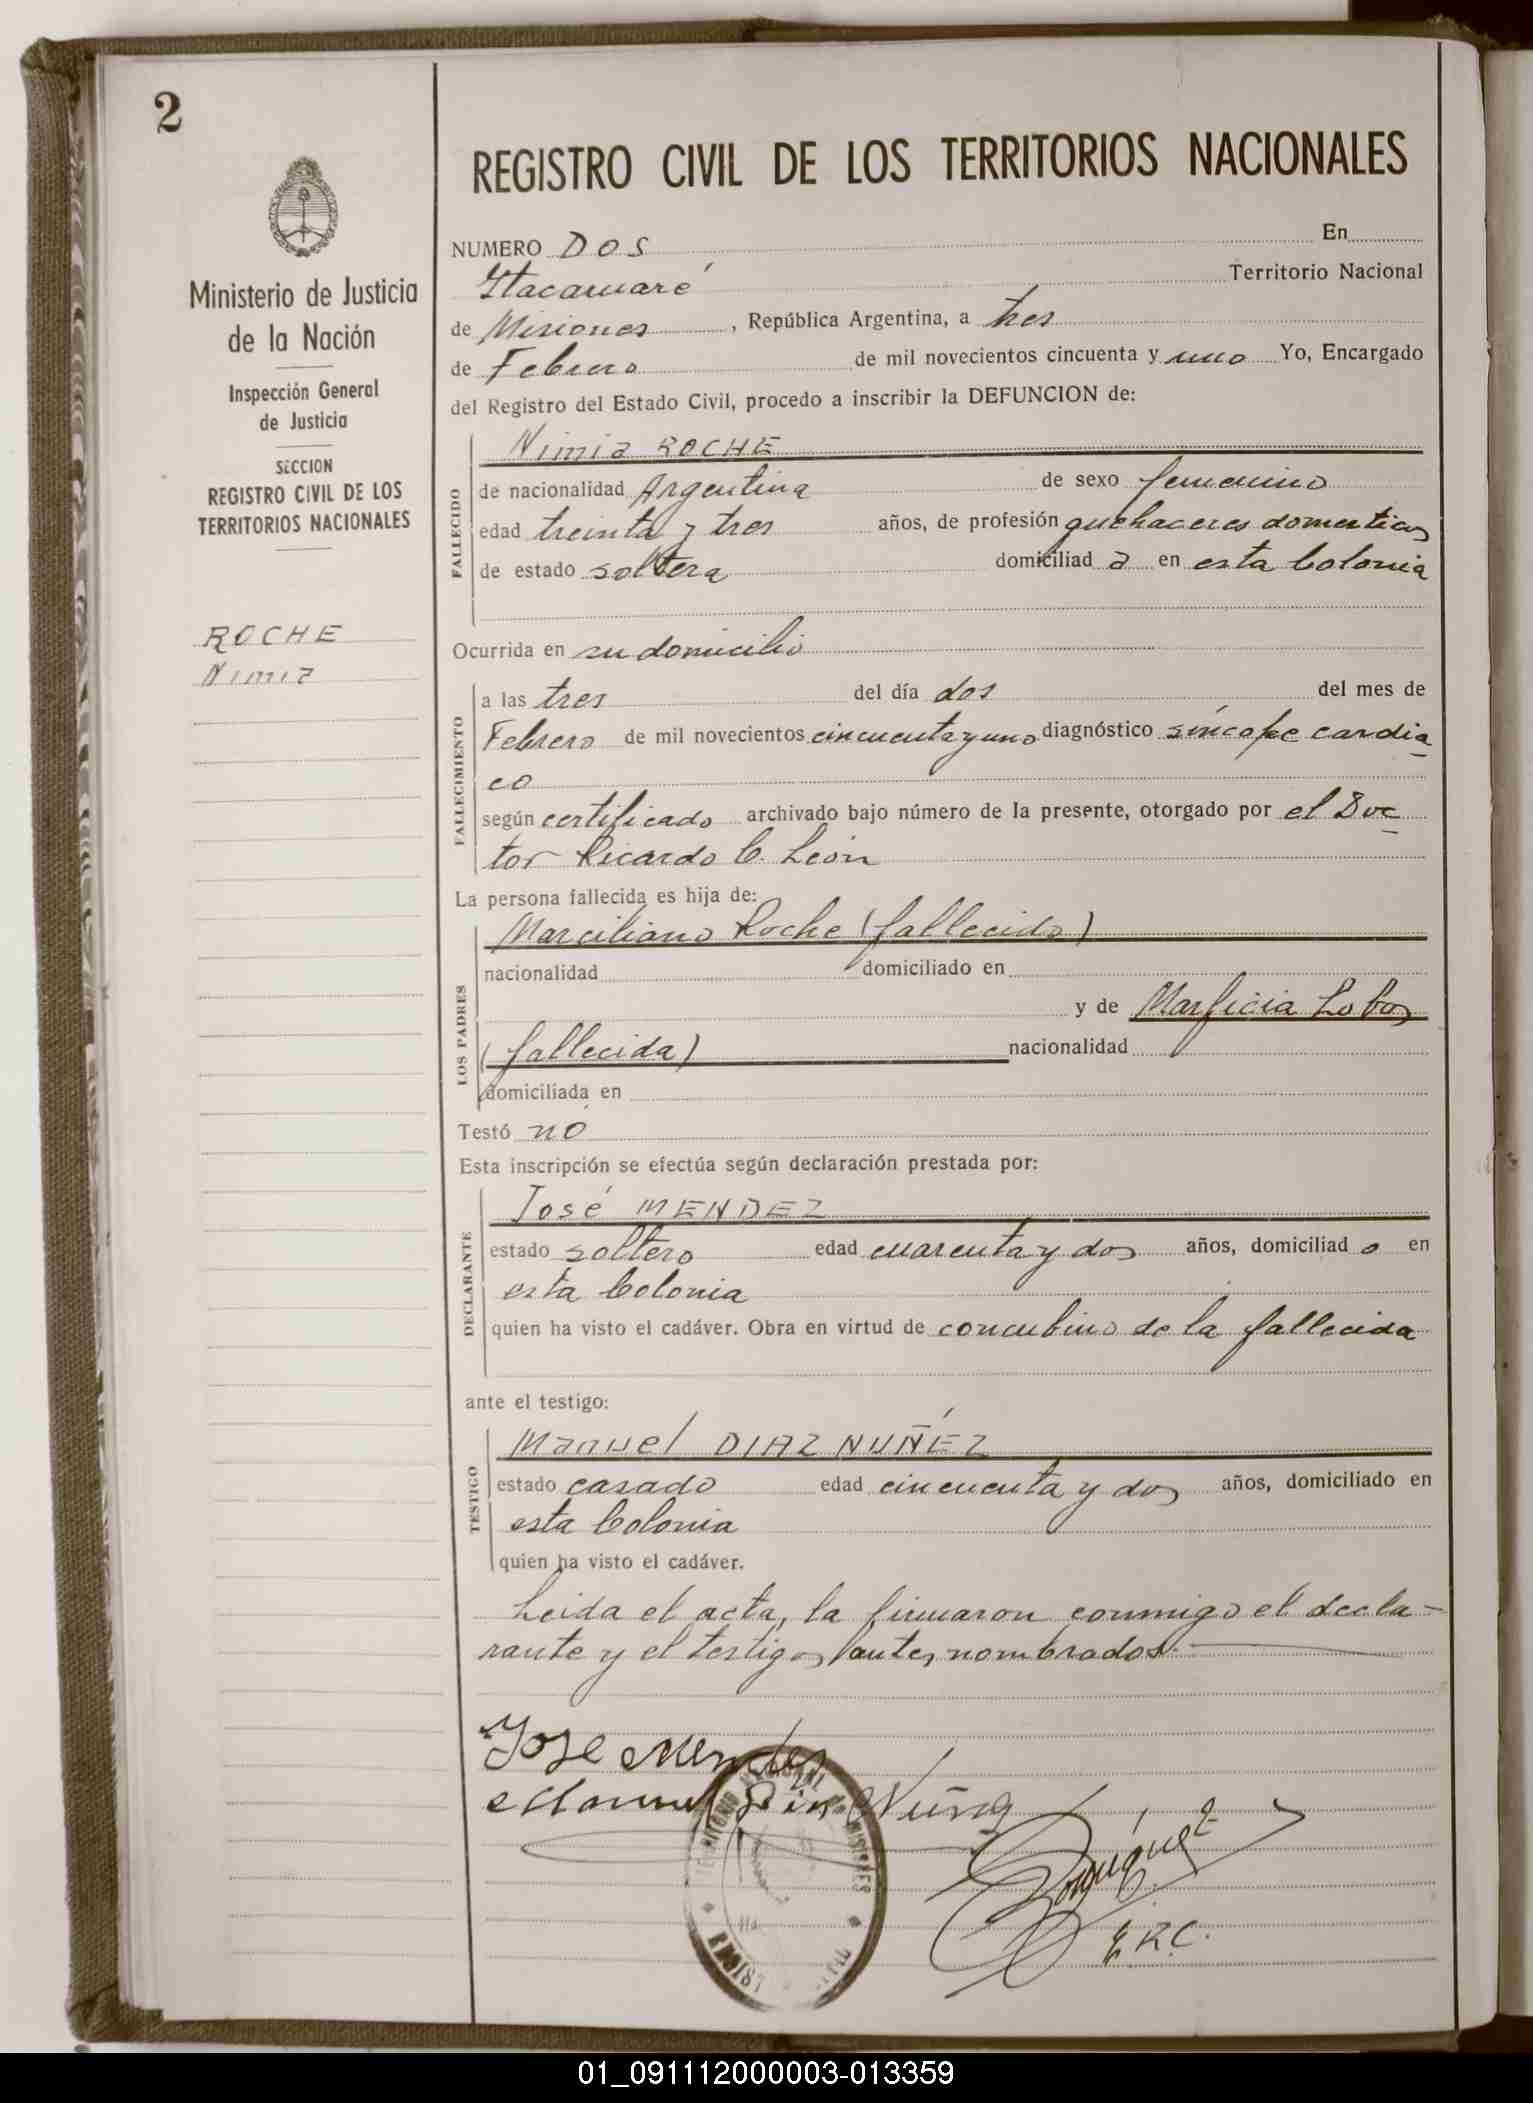 2
Ministerio de Justicia
de la Nación
Inspección General
de Justicia
SECCION
REGISTRO CIVIL DE LOS
TERRITORIOS NACIONALES
ROCHE
Nimia
REGISTRO CIVIL DE LOS TERRITORIOS NACIONALES
NUMERO DOS En
Itacaruaré Territorio Nacional
de Misiones, República Argentina, a tres
de Febrero de mil novecientos cincuenta y uno Yo, Encargado
del Registro del Estado Civil, procedo a inscribir la DEFUNCION de:
FALLECIDO
Nimia ROCHE
de nacionalidad Argentina de sexo femenino
edad treinta y tres años, de profesión quehaceres domesticos
de estado soltera domiciliad a en esta Colonia
Ocurrida en su domicilio
FALLECIMIENTO
a las tres del día dos del mes de
Febrero de mil novecientos cincuenta y uno diagnóstico síncope cardia
co
según certificado archivado bajo número de la presente, otorgado por el Doc
tor Ricardo C. León
La persona fallecida es hija de:
LOS PADRES
Marciliano Roche (fallecido)
nacionalidad domiciliado en
y de Marficia Lobos
(fallecida) nacionalidad
domiciliada en
Testó nó
Esta inscripción se efectúa según declaración prestada por:
DECLARANTE
José MENDEZ
estado soltero edad cuarenta y dos años, domiciliad o en
esta Colonia
quien ha visto el cadáver. Obra en virtud de concubino de la fallecida
ante el testigo:
TESTIGO
Manuel DIAZ NUÑÉZ
estado casado edad cincuenta y dos años, domiciliado en
esta Colonia
quien ha visto el cadáver.
Leida el acta, la firmaron conmigo el decla-
rante y el testigo, antes nombrados.-
Jose Mendez
Manuel Diaz Nuñez
E.R.C.
TERRITORIO NACIONAL MISIONES
01_091112000003-013359